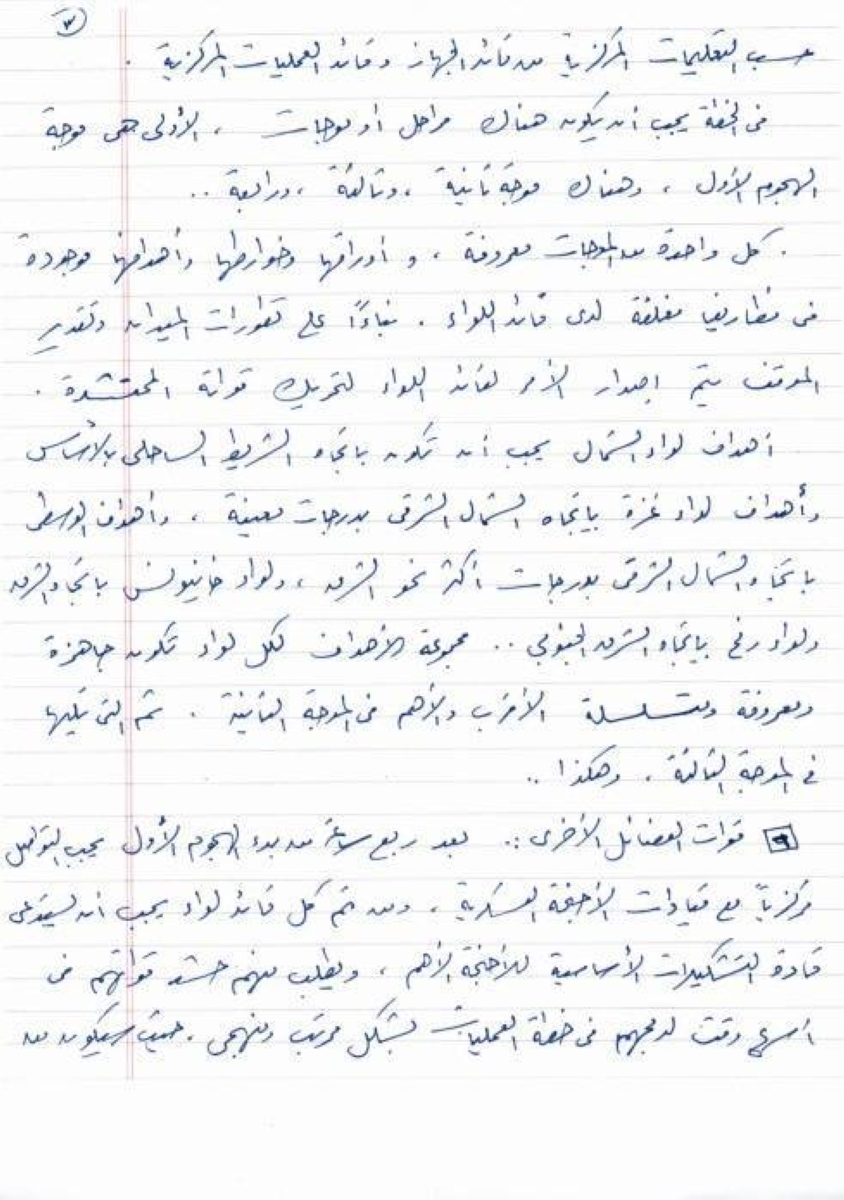 ٣
حسب التعليمات المركزية من قائد الجهاز وقائد العمليات المركزية .
فى الخطة يجب أن يكون هناك مراحل أو موجات ، الأولى هى موجة
الهجوم الأول ، وهناك موجة ثانية ، وثالثة ، ورابعة ..
. كل واحدة من الموجات معروفة ، و أوراقها وخوارطها وأهدافها موجودة
فى مظاريف مغلقة لدى قائد اللواء . بناءًا على تطورات الميدان وتقدير
الموقف يتم اصدار الأمر لقائد اللواء لتحريك قواته المحتشدة .
أهداف لواء الشمال يجب أن تكون باتجاه الشريط الساحلى بالأساس
وأهداف لواء غزة باتجاه الشمال الشرقى بدرجات معينة ، وأهداف الوسطى
باتجاه الشمال الشرقى بدرجات أكثر نحو الشرق ، ولواء خانيونس باتجاه الشرق
ولواء رفح باتجاه الشرق الجنوبي .. مجموعة الأهداف لكل لواء تكون جاهزة
ومعروفة ومتسلسلة الأقرب والأهم فى الموجة الثانية . ثم التى تليها
فى الموجة الثالثة . وهكذا ..
٩ قوات الفصائل الأخرى :. بعد ربع ساعة من بدء الهجوم الأول يجب التواصل
مركزياً مع قيادات الأجنحة العسكرية ، ومن ثم كل قائد لواء يجب أن يستدعى
قادة التشكيلات الأساسية للأجنحة الأهم ، ويطلب منهم حشد قواتهم فى
أسرع وقت لدمجهم فى خطة العمليات بشكل مرتب ومنهجى . حيث سيكون من